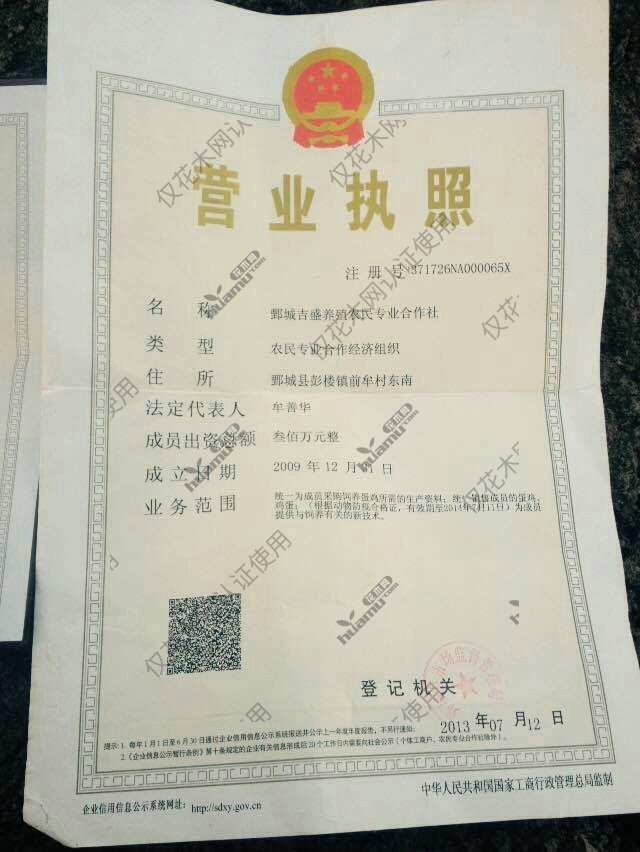 营业执照
注册号 371726NA000065X
名称 鄄城吉盛养殖农民专业合作社
类型 农民专业合作经济组织
住所 鄄城县彭楼镇前牟村东南
法定代表人 牟善华
成员出资总额 叁佰万元整
成立日期 2009 年 12 月 日
业务范围 统一为成员采购饲养蛋鸡所需的生产资料；统一销售成员的蛋鸡、
鸡蛋；（根据动物防疫合格证，有效期至2014年7月11日）为成员
提供与饲养有关的新技术。
登记机关
2013 年 07 月 12 日
提示：1. 每年1月1日至6月30日通过企业信用信息公示系统报送并公示上一年度年度报告，不另行通知；
2.《企业信息公示暂行条例》第十条规定的企业有关信息形成后20个工作日内需要向社会公示（个体工商户、农民专业合作社除外）。
企业信用信息公示系统网址：http://sdxy.gov.cn
中华人民共和国国家工商行政管理总局监制
仅花木网认证使用
仅花木网认证使用
仅花木网认证使用
仅花木网认证使用
花木网
huamu.com
花木网
huamu.com
花木网
huamu.com